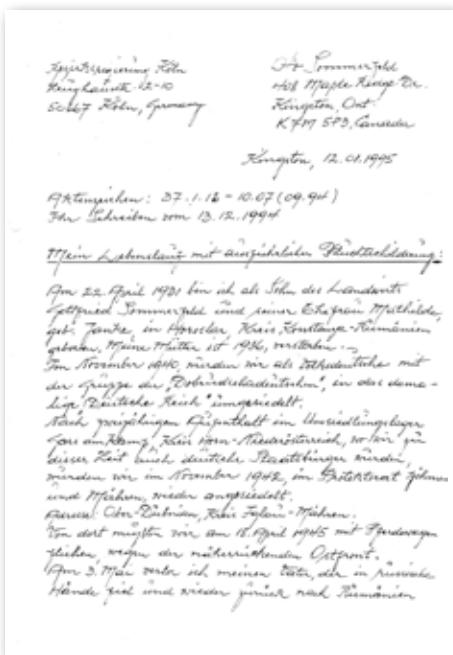 Bezirksregierung Köln
Zeughausstr. 12-10
50667 Köln, Germany
Otto Sommerfeld
408 Maple Ridge Dr.
Kingston, Ont.
K7M 5P3, Canada
Kingston, 12.01.1995
Aktenzeichen: 37.1.12 - 10.07 (09.94)
Ihr Schreiben vom 13.12.1994
Mein Lebenslauf mit ausführlicher Fluchtschilderung:
Am 22. April 1931 bin ich als Sohn des Landwirts
Gottfried Sommerfeld und seiner Ehefrau Mathilde,
geb. Janke in Kreis Konstanza-Rumänien
geboren. Meine Mutter ist 1936, verstorben.
Im November 1940, wurden wir als Volksdeutsche mit
der Gruppe der "Dobrudschadeutschen", in das dama-
lige "Deutsche Reich" umgesiedelt.
Nach zweijährigem Aufenthalt im Umsiedlungslager
Gars am Kamp, Kreis Horn-Niederösterreich, wo wir zu
dieser Zeit auch deutsche Staatsbürger wurden,
wurden wir im November 1942, im Protektorat Böhmen
und Mähren, wieder angesiedelt.
Ober-Dubnian, Kreis Iglau-Mähren.
Von dort mußten wir am 18. April 1945 mit Pferdewagen
fliehen wegen der näherrückenden Ostfront.
Am 9. Mai verlor ich meinen Vater, der in russische
Hände fiel und wieder zurück nach Rumänien